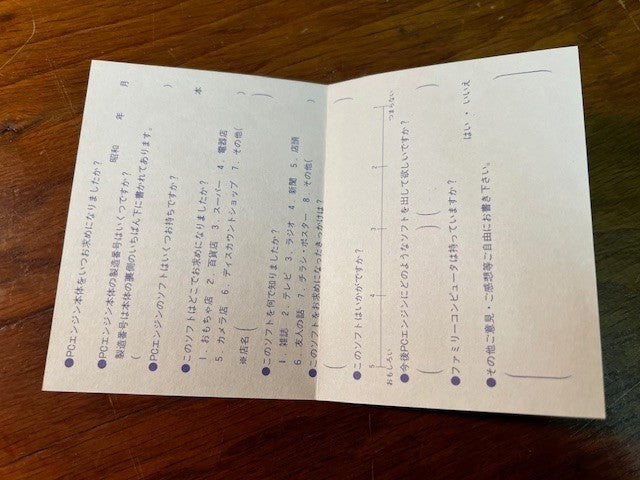 ●PCエンジン本体をいつお求めになりましたか?
昭和 年 月
●PCエンジン本体の製造番号はいくつですか?
製造番号は本体の裏側のいちばん下に書かれてあります。
( )
●PCエンジンのソフトはいくつお持ちですか?
本
●このソフトはどこでお求めになりましたか?
1. おもちゃ店 2. 百貨店 3. スーパー 4. 電器店
5. カメラ店 6. ディスカウントショップ 7. その他( )
※店名( )
●このソフトを何で知りましたか?
1. 雑誌 2. テレビ 3. ラジオ 4. 新聞 5. 店頭
6. 友人の話 7. チラシ・ポスター 8. その他( )
●このソフトをお求めになったきっかけは?
( )
●このソフトはいかがですか?
5 4 3 2 1
おもしろい つまらない
●今後PCエンジンにどのようなソフトを出して欲しいですか?
( ) ( )
●ファミリーコンピュータは持っていますか?
はい ・ いいえ
●その他ご意見・ご感想等ご自由にお書き下さい。